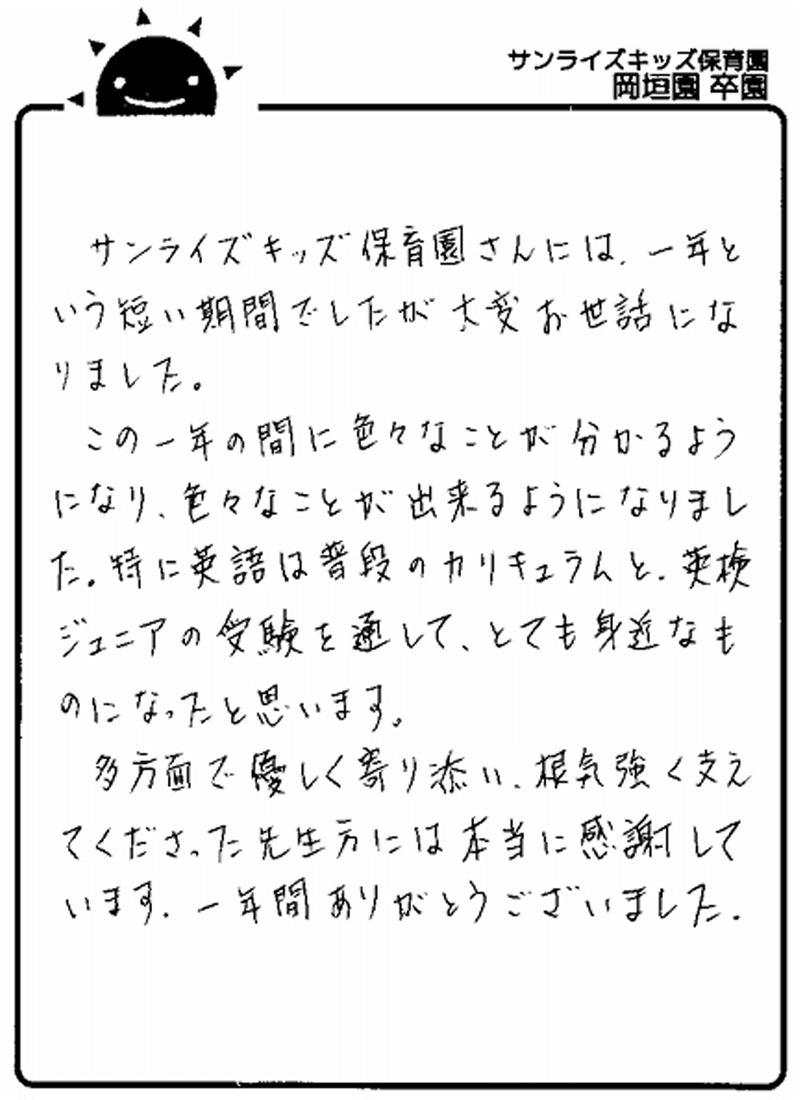 サンライズキッズ保育園
岡垣園 卒園
サンライズキッズ保育園さんには、一年と
いう短い期間でしたが大変お世話にな
りました。
この一年の間に色々なことが分かるよう
になり、色々なことが出来るようになりまし
た。特に英語は普段のカリキュラムと、英検
ジュニアの受験を通して、とても身近なも
のになったと思います。
多方面で優しく寄り添い、根気強く支え
てくださった先生方には本当に感謝して
います。一年間ありがとうございました。